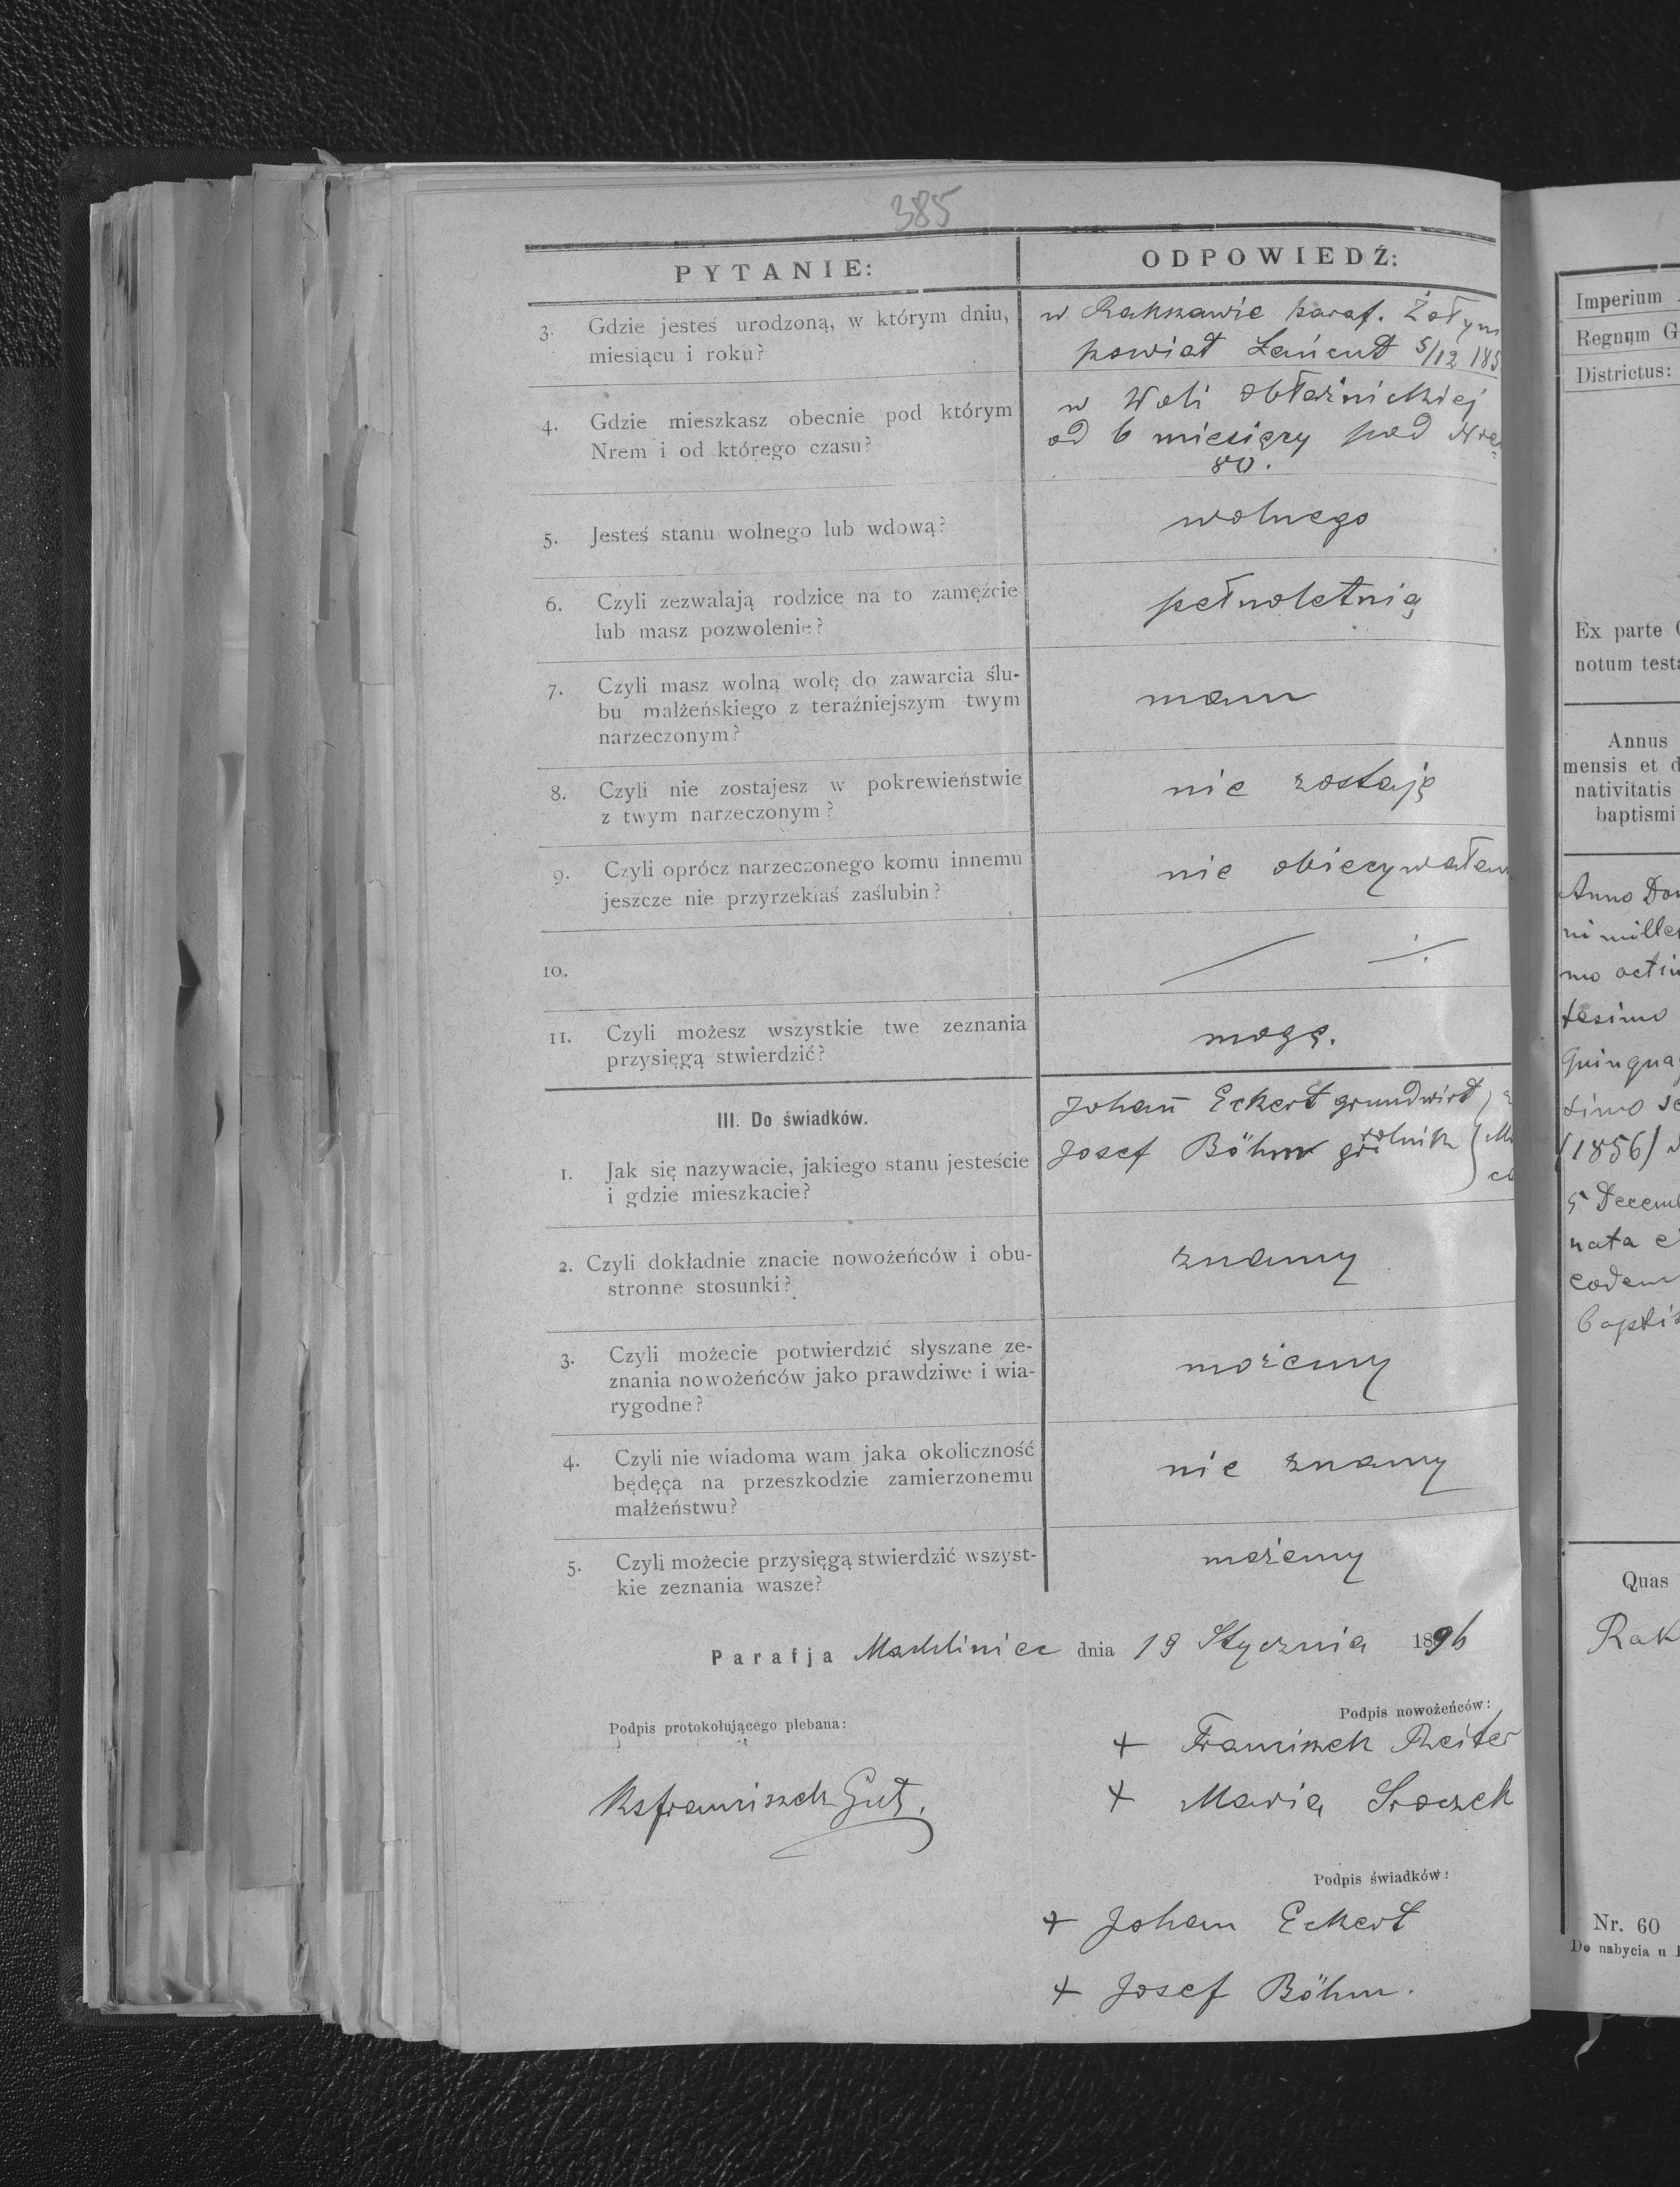 385
PYTANIE:
ODPOWIEDŹ:
3. Gdzie jesteś urodzoną, w którym dniu,
miesiącu i roku?
w Rakszawie paraf. Żołyn
powiat Łańcut 5/12 185
4. Gdzie mieszkasz obecnie pod którym
Nrem i od którego czasu?
w Woli obłaźnickiej
od 6 miesięcy pod Nre
80.
5. Jesteś stanu wolnego lub wdową?
wolnego
6. Czyli zezwalają rodzice na to zamęźcie
lub masz pozwolenie?
pełnoletnią
7. Czyli masz wolną wolę do zawarcia ślu-
bu małżeńskiego z teraźniejszym twym
narzeczonym?
mam
8. Czyli nie zostajesz w pokrewieństwie
z twym narzeczonym?
nie zostaję
9. Czyli oprócz narzeczonego komu innemu
jeszcze nie przyrzekłaś zaślubin?
nie obiecywałem
10.
11. Czyli możesz wszystkie twe zeznania
przysięgą stwierdzić?
mogę.
III. Do świadków.
1. Jak się nazywacie, jakiego stanu jesteście
i gdzie mieszkacie?
Johan̄ Eckert grundwirt
Josef Böhm rolnik
2. Czyli dokładnie znacie nowożeńców i obu-
stronne stosunki?
znamy
3. Czyli możecie potwierdzić słyszane ze-
znania nowożeńców jako prawdziwe i wia-
rygodne?
możemy
4. Czyli nie wiadoma wam jaka okoliczność
będęça na przeszkodzie zamierzonemu
małżeństwu?
nie znamy
5. Czyli możecie przysięgą stwierdzić wszyst-
kie zeznania wasze?
możemy
Parafja Machliniec dnia 19 Stycznia 1896
Podpis protokołującego plebana:
Podpis nowożeńców:
+ Franciszek Reiter
+ Maria Sroczek
Ks franciszek Gut.
Podpis świadków:
+ Johan Eckert
+ Josef Böhm.
Imperium
Regnum G
Districtus:
Ex parte
notum testa
Annus
mensis et d
nativitatis
baptismi
Anno Dom
ni milles
mo actin
tesimo
Quinqua
simo se
(1856)
5 Decem
nata e
eodem
baptis
Quas
Rak
Nr. 60
Do nabycia u